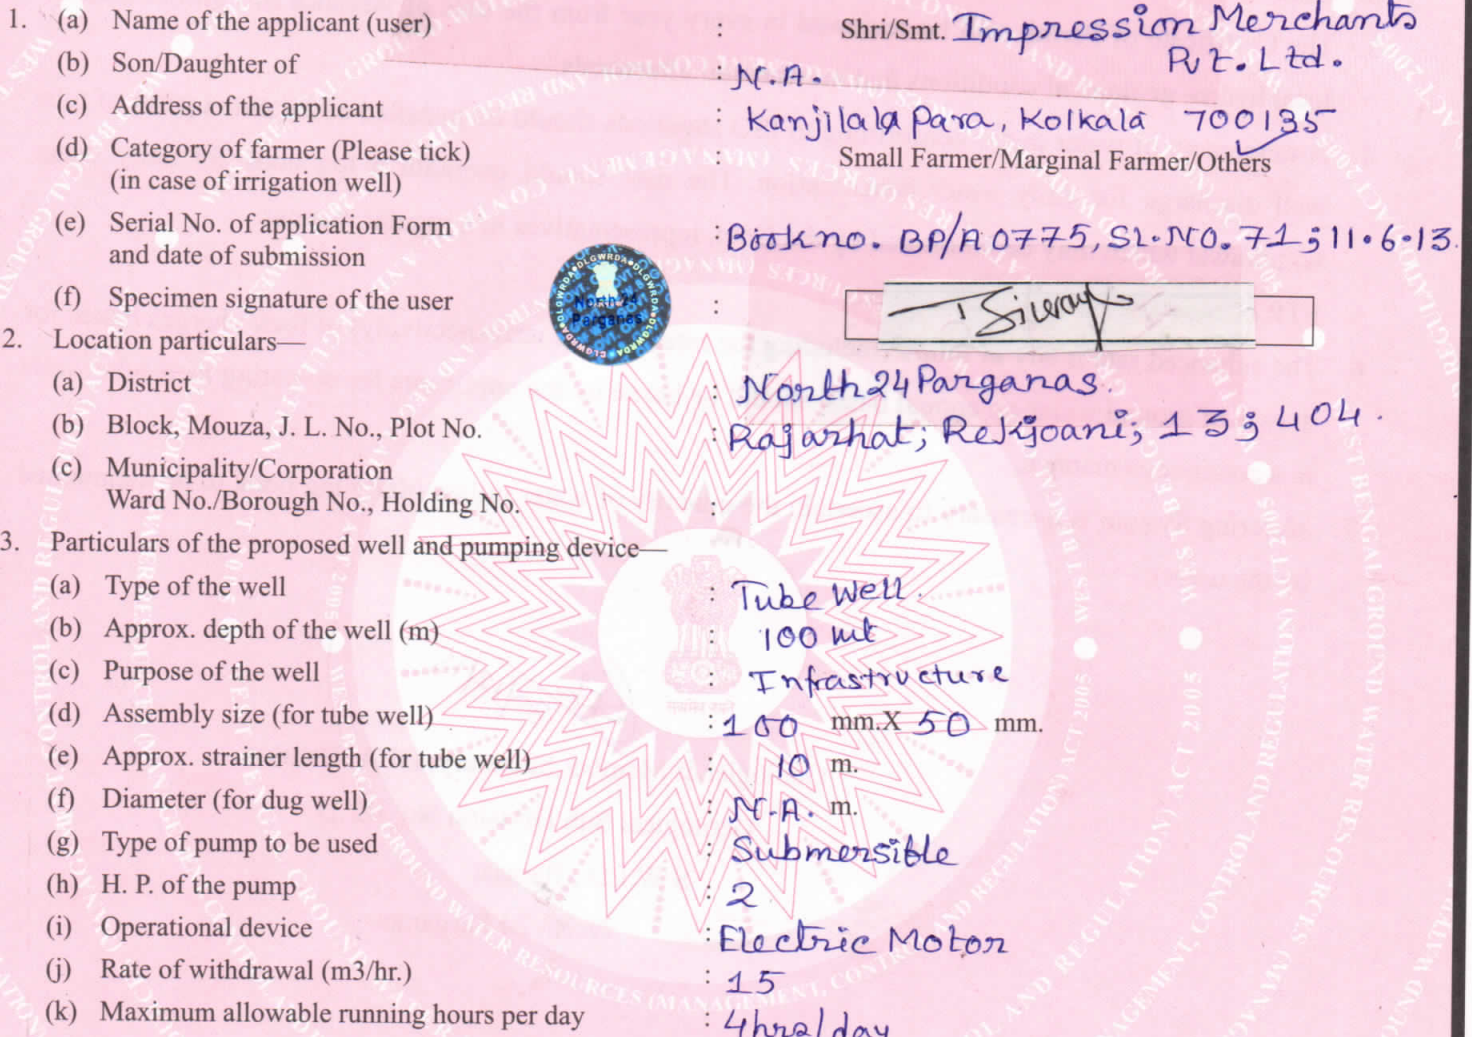 1. (a) Name of the applicant (user) : Shri/Smt. Impression Merchants
Pvt. Ltd.
(b) Son/Daughter of : N.A.
(c) Address of the applicant : Kanjilala Para, Kolkala 700135
(d) Category of farmer (Please tick) : Small Farmer/Marginal Farmer/Others
(in case of irrigation well)
(e) Serial No. of application Form : Book no. BP/A 0775, SL. NO. 71; 11.6.13.
and date of submission
(f) Specimen signature of the user :
North 24
Parganas
2. Location particulars—
(a) District : North 24 Parganas.
(b) Block, Mouza, J. L. No., Plot No. : Rajarhat; Rekjoani; 13; 404.
(c) Municipality/Corporation
Ward No./Borough No., Holding No. :
3. Particulars of the proposed well and pumping device—
(a) Type of the well : Tube Well.
(b) Approx. depth of the well (m) : 100 mt
(c) Purpose of the well : Infrastructure
(d) Assembly size (for tube well) : 100 mm.X 50 mm.
(e) Approx. strainer length (for tube well) : 10 m.
(f) Diameter (for dug well) : N.A. m.
(g) Type of pump to be used : Submersible
(h) H. P. of the pump : 2
(i) Operational device : Electric Motor
(j) Rate of withdrawal (m3/hr.) : 15
(k) Maximum allowable running hours per day : 4hrs/day